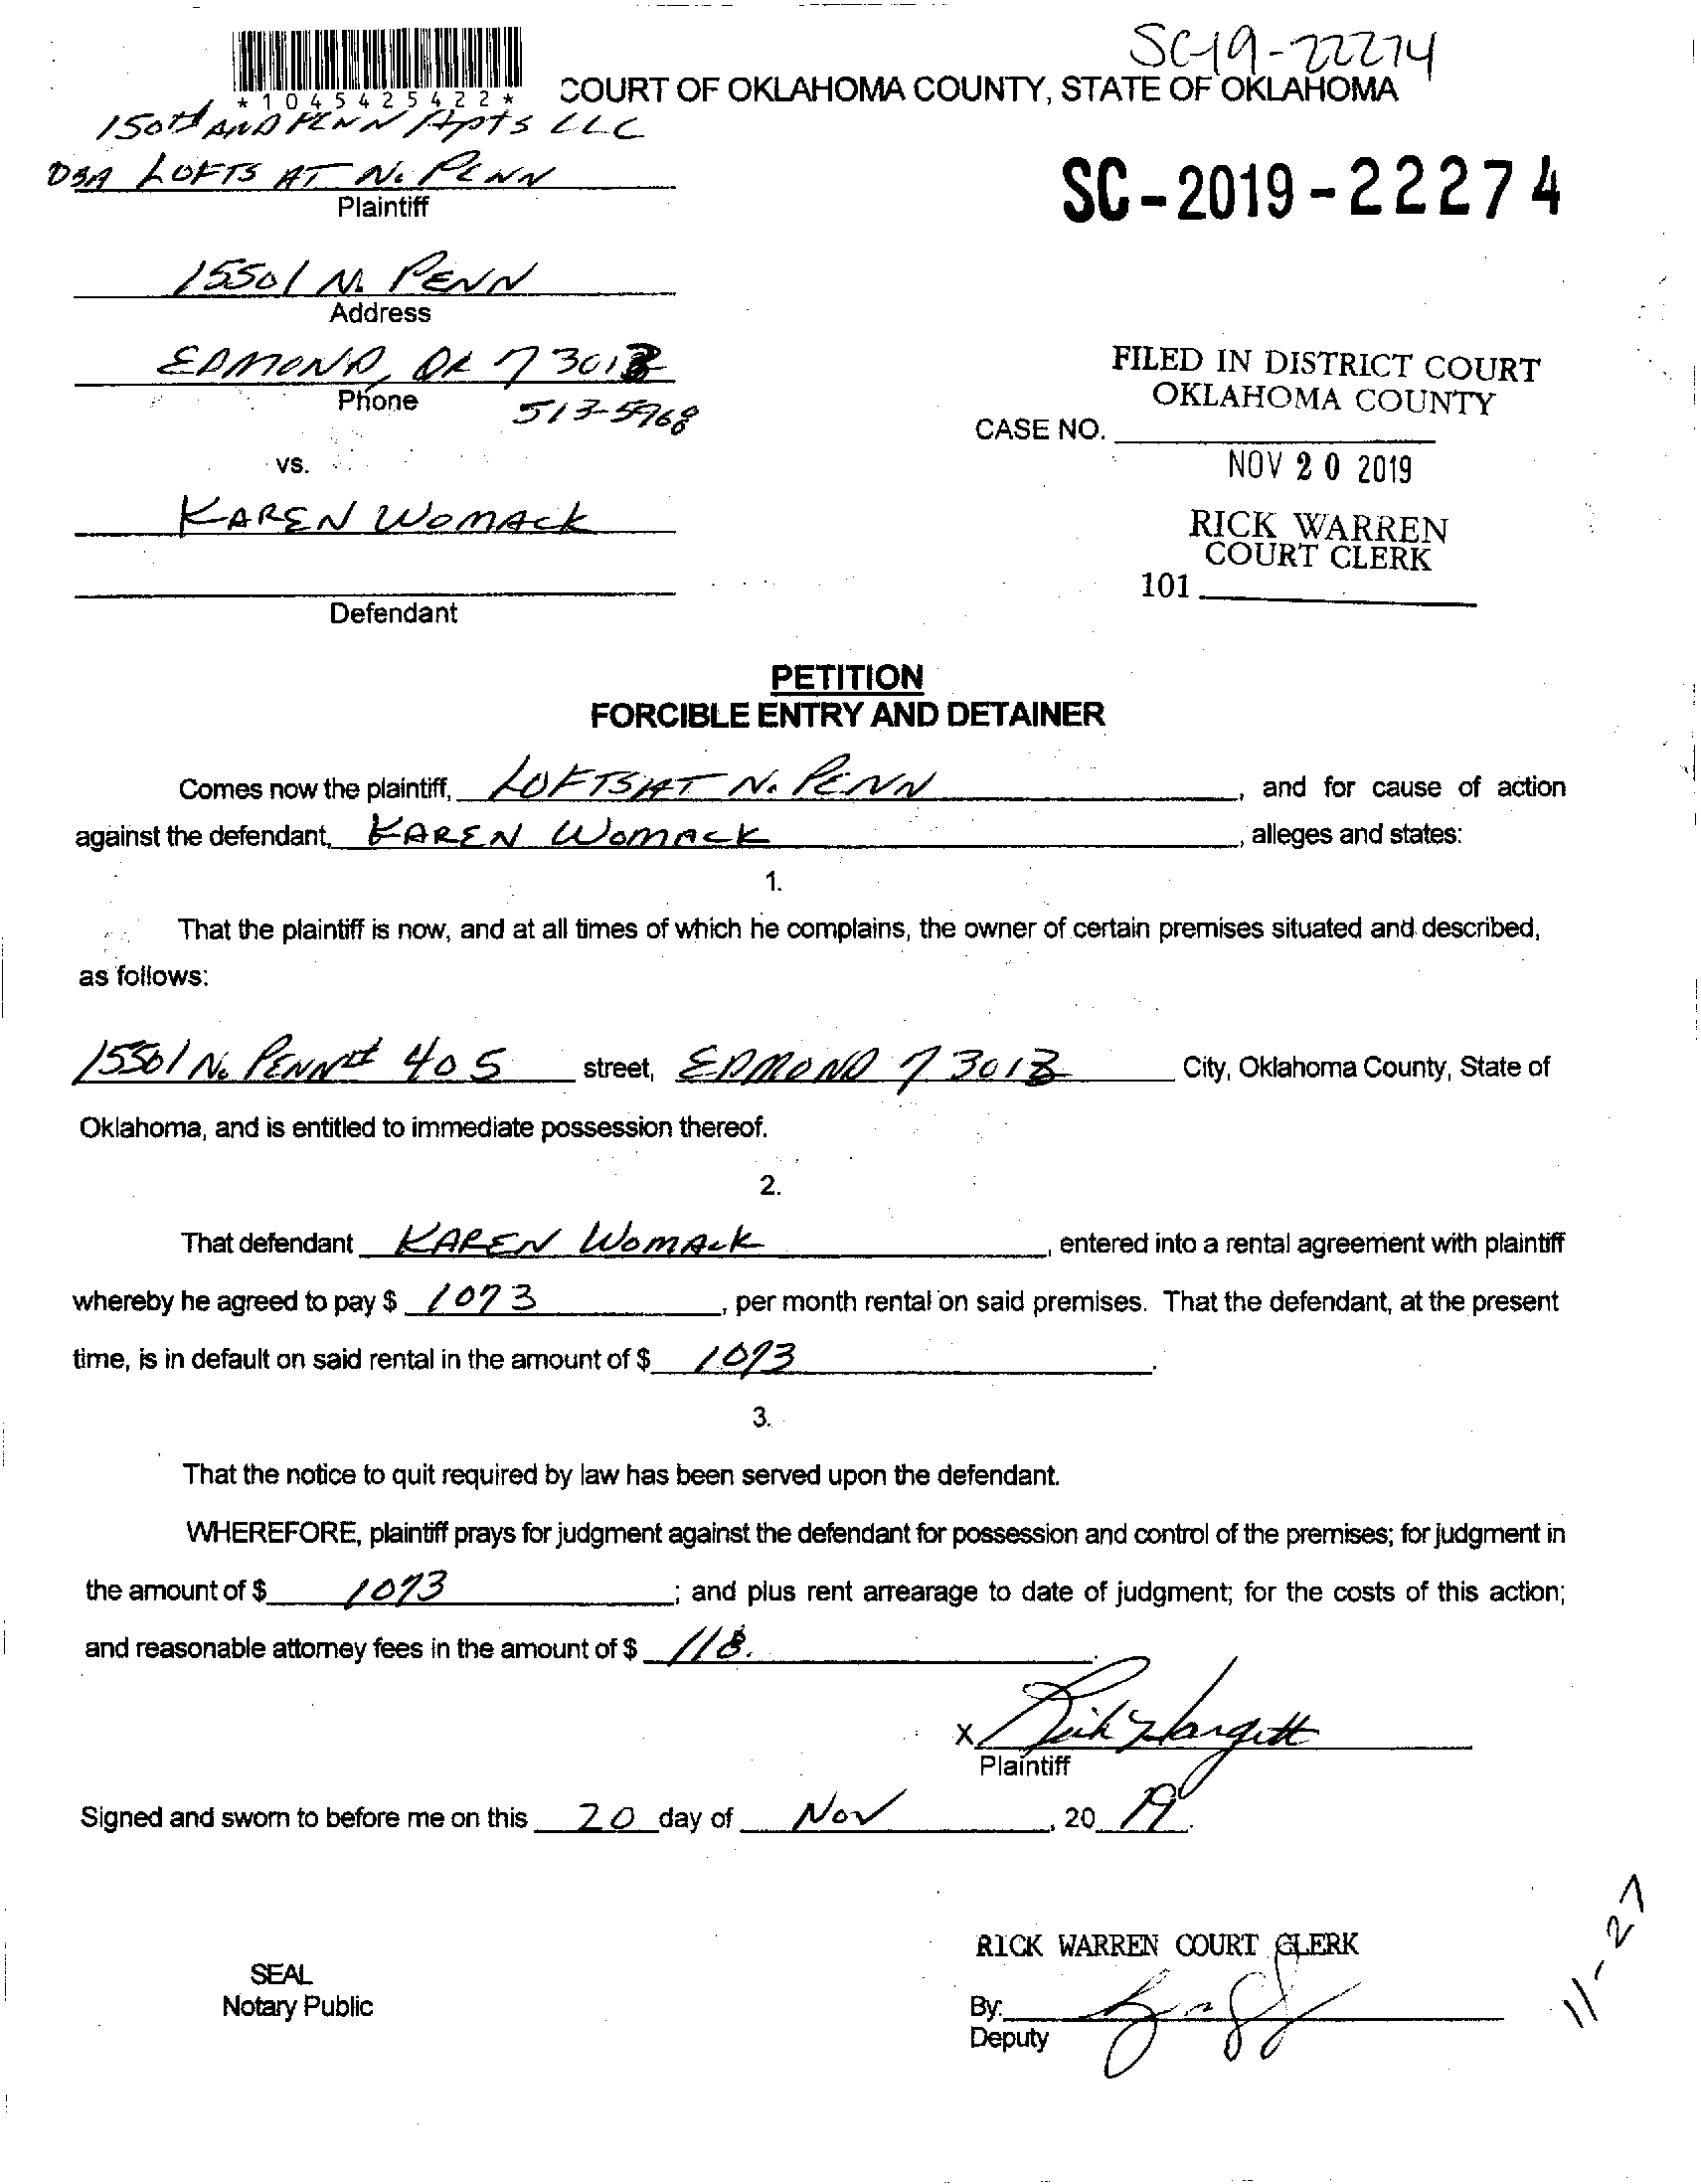 SC-19-22274
*1045425422*
COURT OF OKLAHOMA COUNTY, STATE OF OKLAHOMA
150th AND PENN Apts LLC
DBA LOFTS AT N. PENN
Plaintiff
SC-2019-22274
15501 N. PENN
Address
EDMOND, OK 73013
Phone
513-5968
FILED IN DISTRICT COURT
OKLAHOMA COUNTY
CASE NO.
NOV 20 2019
vs.
KAREN WOMACK
RICK WARREN
COURT CLERK
101
Defendant
PETITION
FORCIBLE ENTRY AND DETAINER
Comes now the plaintiff, LOFTS AT N. PENN, and for cause of action
against the defendant, KAREN WOMACK, alleges and states:
1.
That the plaintiff is now, and at all times of which he complains, the owner of certain premises situated and described,
as follows:
15501 N. PENN # 405 street, EDMOND 73013 City, Oklahoma County, State of
Oklahoma, and is entitled to immediate possession thereof.
2.
That defendant KAREN WOMACK, entered into a rental agreement with plaintiff
whereby he agreed to pay $ 1073, per month rental on said premises. That the defendant, at the present
time, is in default on said rental in the amount of $ 1073.
3.
That the notice to quit required by law has been served upon the defendant.
WHEREFORE, plaintiff prays for judgment against the defendant for possession and control of the premises; for judgment in
the amount of $ 1073; and plus rent arrearage to date of judgment; for the costs of this action;
and reasonable attorney fees in the amount of $ 118.
x Rick Hargett
Plaintiff
Signed and sworn to before me on this 20 day of Nov, 20 19.
11-27
RICK WARREN COURT CLERK
SEAL
Notary Public
By:
Deputy